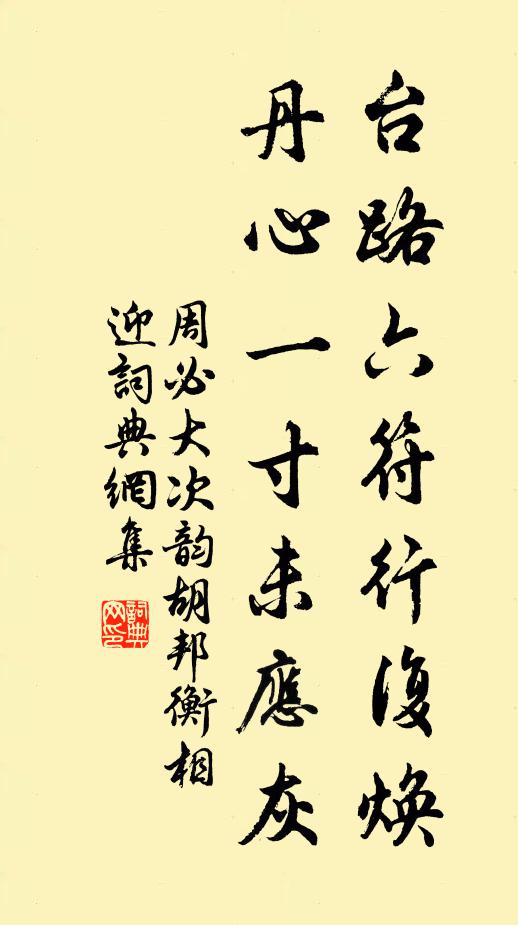 台路六符行復煥
丹心一寸未應灰
周必大次韵胡邦衡相
迎詞典網集
詞典網印